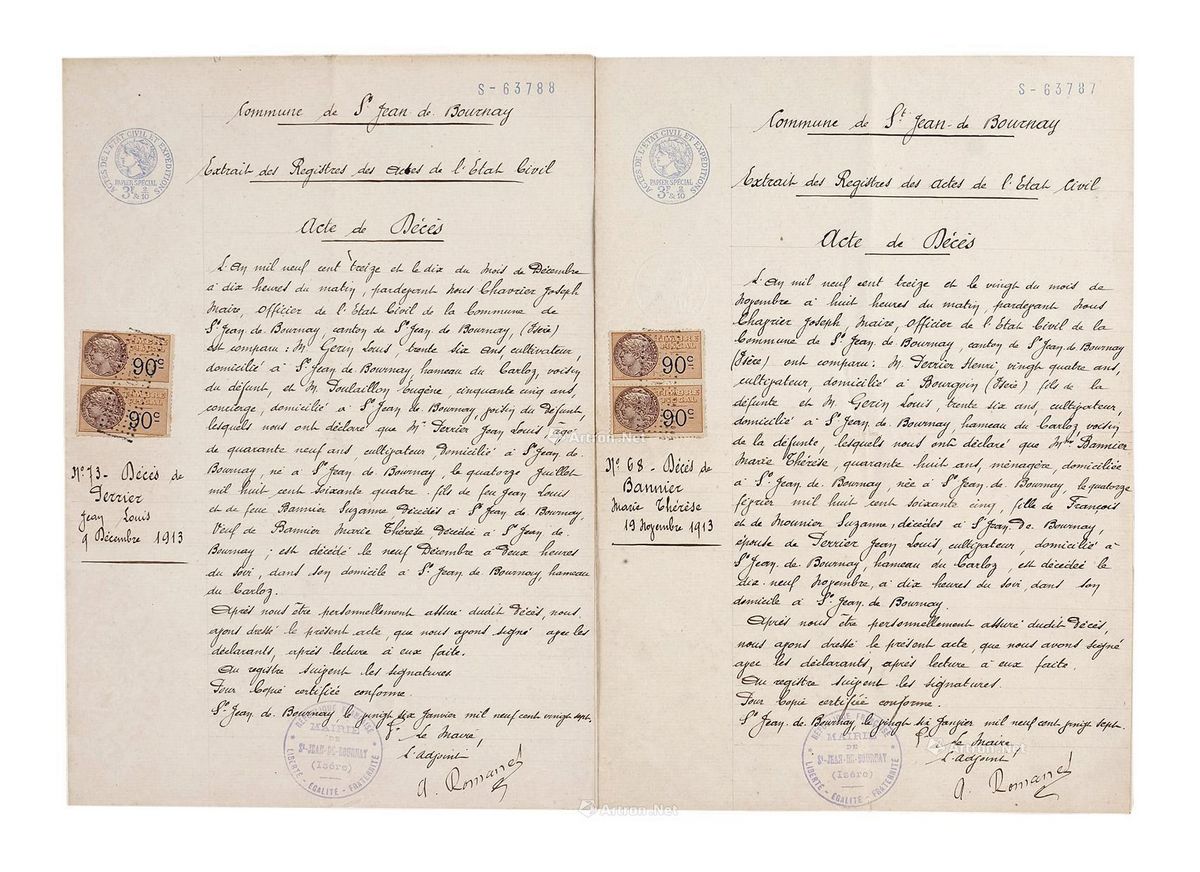 S-63788
Commune de St Jean de Bournay
ACTES DE L'ETAT CIVIL ET EXPEDITIONS
PAPIER SPÉCIAL
3F
& 2/10
Extrait des Registres des actes de l'Etat Civil
Acte de Décès
L'An mil neuf cent treize et le dix du mois de Décembre
à dix heures du matin, pardevant nous Chavrier Joseph
Maire, Officier de l'Etat Civil de la Commune de
St Jean de Bournay, canton de St Jean de Bournay, (Isère)
est comparu : M. Gerin Louis, trente six ans, cultivateur,
domicilié à St Jean de Bournay hameau du Carloz, voisin
du défunt, et M. Poulaillon Eugène, cinquante cinq ans,
concierge, domicilié à St Jean de Bournay, voisin du défunt,
lesquels nous ont déclaré que Mr Perrier Jean Louis âgé
de quarante neuf ans, cultivateur domicilié à St Jean de
Bournay, né à St Jean de Bournay, le quatorze Juillet
mil huit cent soixante quatre, fils de feu Jean Louis
et de feue Bannier Suzanne décédés à St Jean de Bournay,
Veuf de Bannier Marie Thérèse décédée à St Jean de
Bournay ; est décédé le neuf Décembre à deux heures
du soir, dans son domicile à St Jean de Bournay, hameau
du Carloz.
Après nous être personnellement assuré dudit décès, nous
avons dressé le présent acte, que nous avons signé avec les
déclarants, après lecture à eux faite.
Au registre suivent les signatures.
Pour Copie certifiée conforme.
St Jean de Bournay, le vingt six Janvier mil neuf cent vingt sept.
Pr Le Maire,
L'adjoint
A. Romanet
90c
90c
No 73 - Décès de
Perrier
Jean Louis
9 Décembre 1913
RÉPUBLIQUE FRANÇAISE
MAIRIE
DE
St-JEAN-DE-BOURNAY
(Isère)
LIBERTÉ - EGALITÉ - FRATERNITÉ
S-63787
Commune de St Jean de Bournay
ACTES DE L'ETAT CIVIL ET EXPEDITIONS
PAPIER SPÉCIAL
3F
& 2/10
Extrait des Registres des actes de l'Etat Civil
Acte de Décès
L'An mil neuf cent treize et le vingt du mois de
Novembre à huit heures du matin, pardevant nous
Chavrier Joseph Maire, officier de l'Etat Civil de la
Commune de St Jean de Bournay, canton de St Jean de Bournay
(Isère) ont comparu : M. Perrier Henri, vingt quatre ans,
cultivateur, domicilié à Bourgoin (Isère) fils de la
défunte et M. Gerin Louis, trente six ans, cultivateur,
domicilié à St Jean de Bournay, hameau du Carloz voisin
de la défunte, lesquels nous ont déclaré que Mme Bannier
Marie Thérèse, quarante huit ans, ménagère, domiciliée
à St Jean de Bournay, née à St Jean de Bournay, le quatorze
février mil huit cent soixante cinq, fille de François
et de Mounier Suzanne, décédés à St Jean de Bournay,
épouse de Perrier Jean Louis, cultivateur, domicilié à
St Jean de Bournay, hameau du Carloz, est décédée le
dix neuf Novembre, à dix heures du soir, dans son
domicile à St Jean de Bournay.
Après nous être personnellement assuré dudit décès,
nous avons dressé le présent acte, que nous avons signé
avec les déclarants, après lecture à eux faite.
Au registre suivent les signatures.
Pour Copie certifiée conforme.
St Jean de Bournay le vingt six Janvier mil neuf cent vingt sept.
Pr Le Maire
L'adjoint
A. Romanet
90c
90c
No 68 - Décès de
Bannier
Marie Thérèse
19 Novembre 1913
RÉPUBLIQUE FRANÇAISE
MAIRIE
DE
St-JEAN-DE-BOURNAY
(Isère)
LIBERTÉ - EGALITÉ - FRATERNITÉ
Artron.Net
Artron.Net
Artron.Net